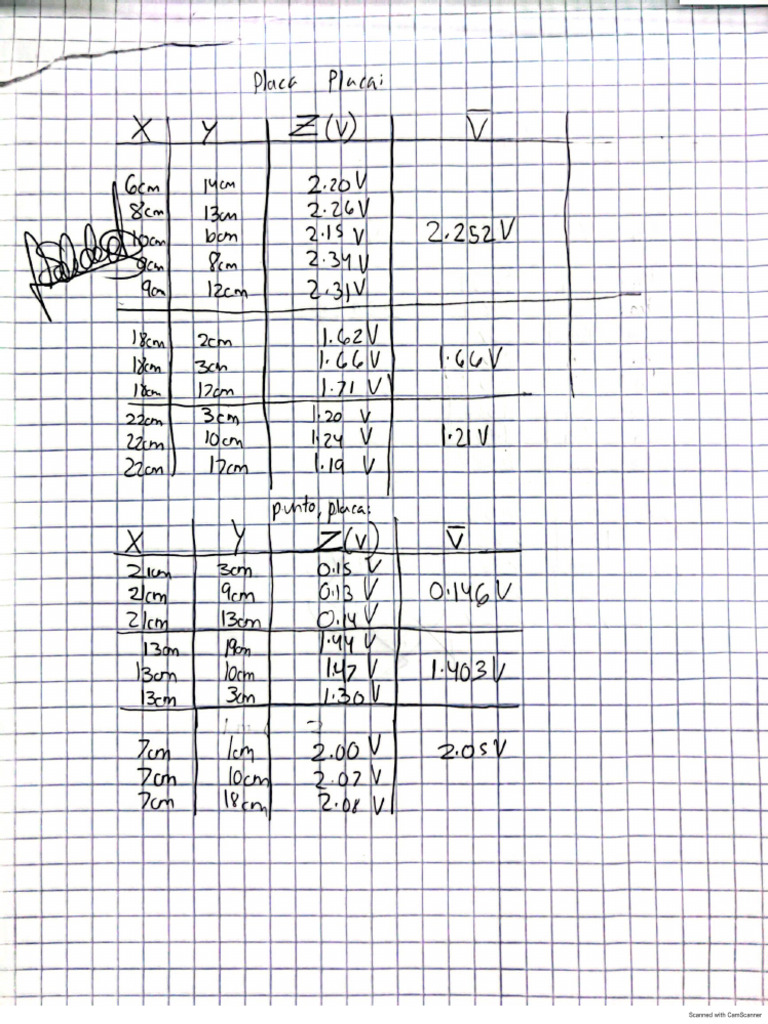 Placa Placa:
X Y Z(V) V̅
6cm 14cm 2.20V
8cm 13cm 2.26V
10cm 6cm 2.15 V 2.252V
8cm 2.34V
9cm 12cm 2.31V
18cm 2cm 1.62V
18cm 3cm 1.66V 1.66V
18cm 17cm 1.71 V
22cm 3cm 1.20 V
22cm 10cm 1.24 V 1.21V
22cm 17cm 1.19 V
punto, placa:
X Y Z(V) V̅
21cm 3cm 0.15 V
21cm 9cm 0.13 V 0.146V
21cm 13cm 0.14 V
13cm 19cm 1.44 V
13cm 10cm 1.47 V 1.403V
13cm 3cm 1.30V
7cm 1cm 2.00 V 2.05V
7cm 10cm 2.07 V
7cm 18cm 2.08 V
Scanned with CamScanner